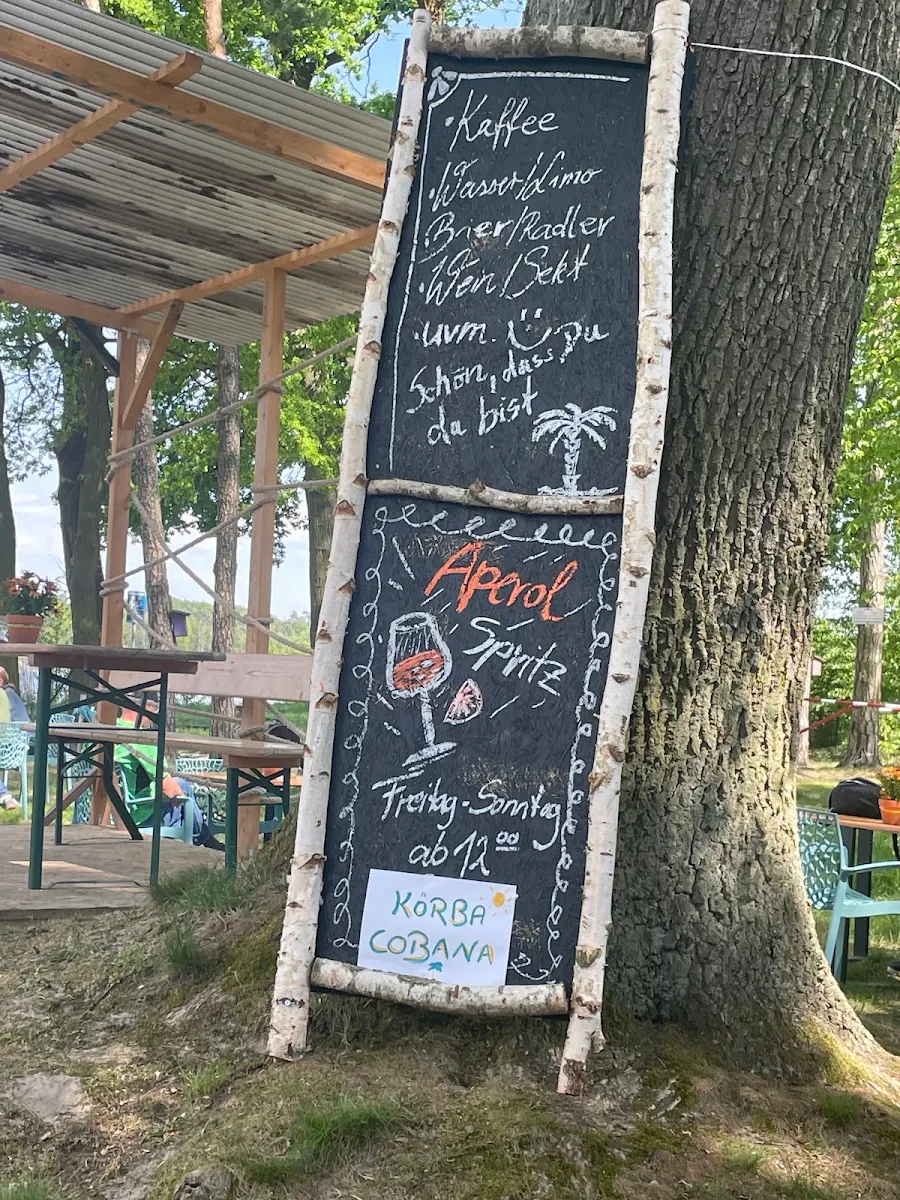 • Kaffee
• Wasser/Limo
• Bier/Radler
• Wein/Sekt
• uvm. Du
Schön, dass
da bist
Aperol
Spritz
Freitag - Sonntag
ab 12⁰⁰
KÖRBA
COBANA